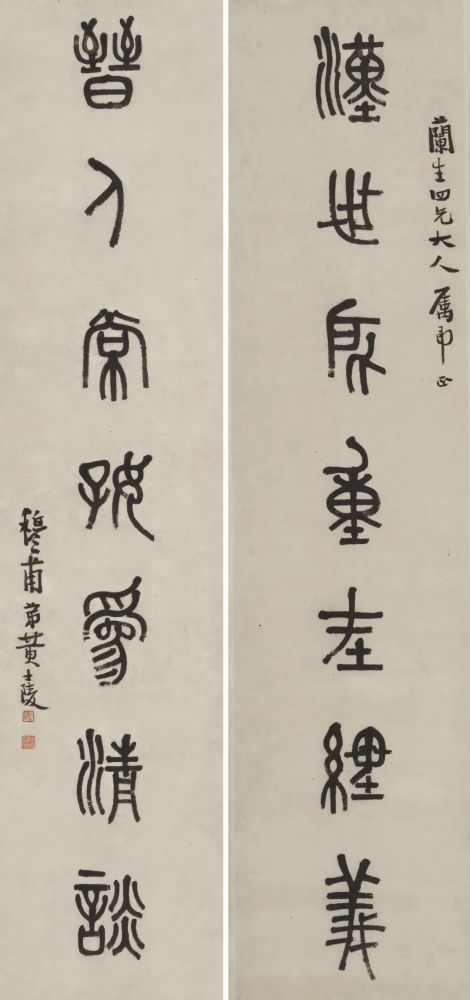 蘭生四兄大人属即正
漢世所重在經義
晉人常好為清談
穆甫弟黃士陵